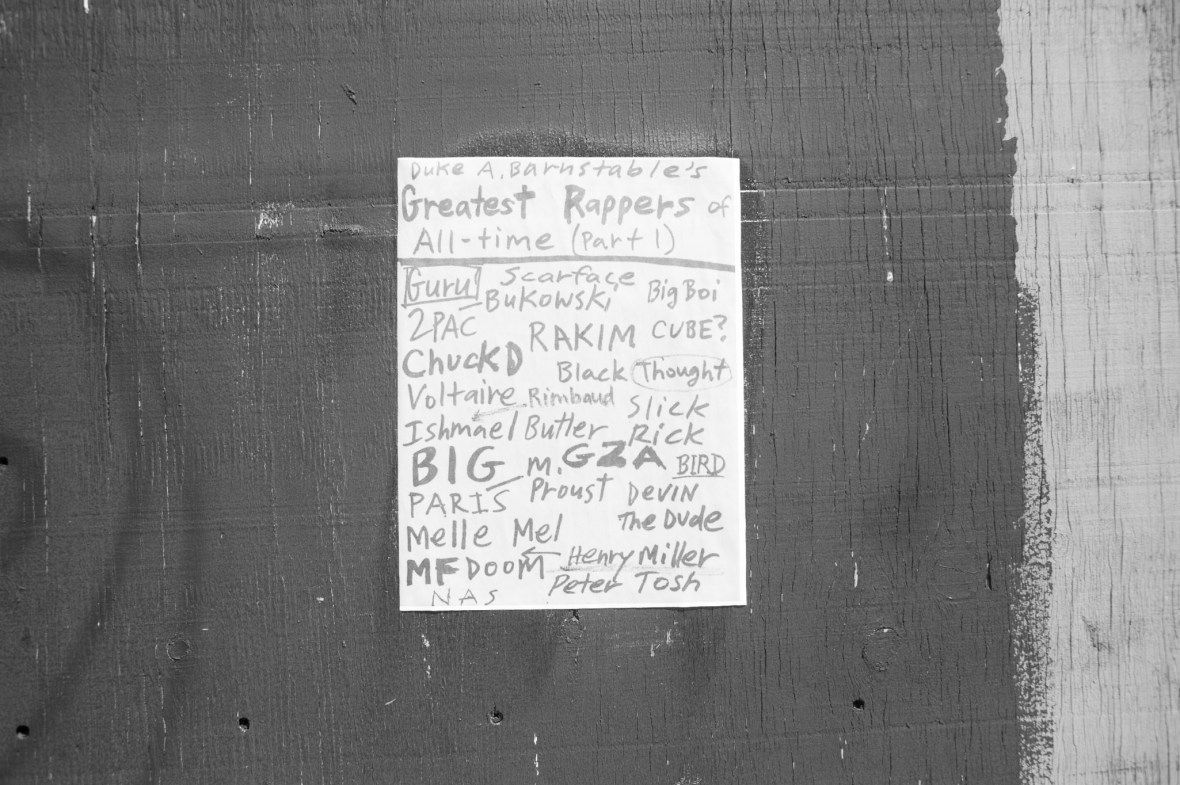 Duke A. Barnstable's
Greatest Rappers of
All-time (Part 1)
Guru Scarface
Bukowski Big Boi
2PAC RAKIM CUBE?
Chuck D Black Thought
Voltaire Rimbaud Slick
Ishmael Butler Rick
BIG M. GZA BIRD
PARIS Proust DEVIN
The Dude
Melle Mel
MF DOOM Henry Miller
Peter Tosh
NAS